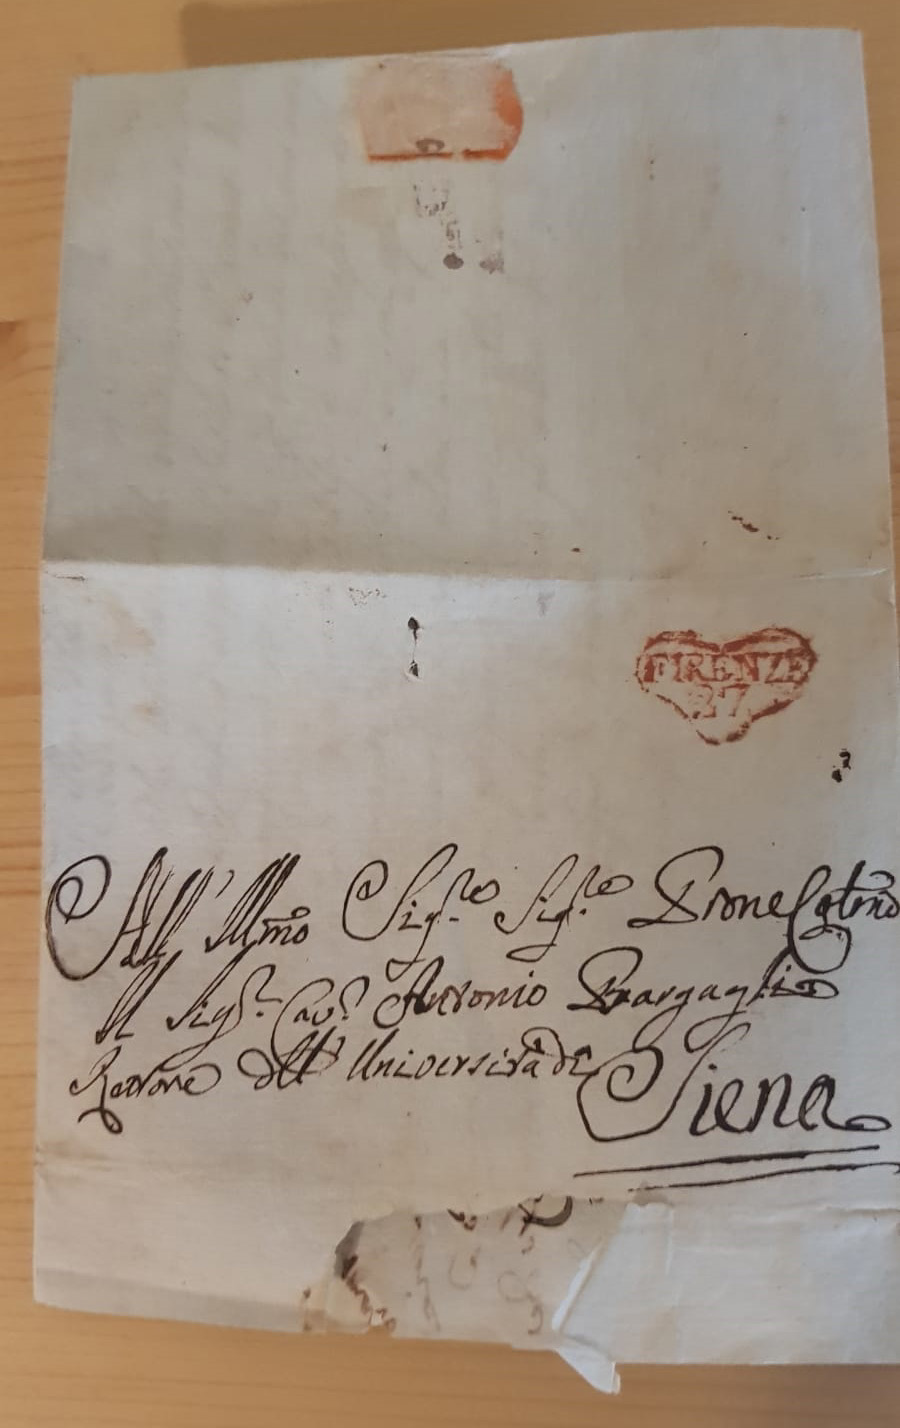 FIRENZE
27
All' Ill.mo Sig.re Sig.re Prone Col.mo
Il Sig.r Cav.r Antonio Bargagli
Rettore dell' Università di Siena